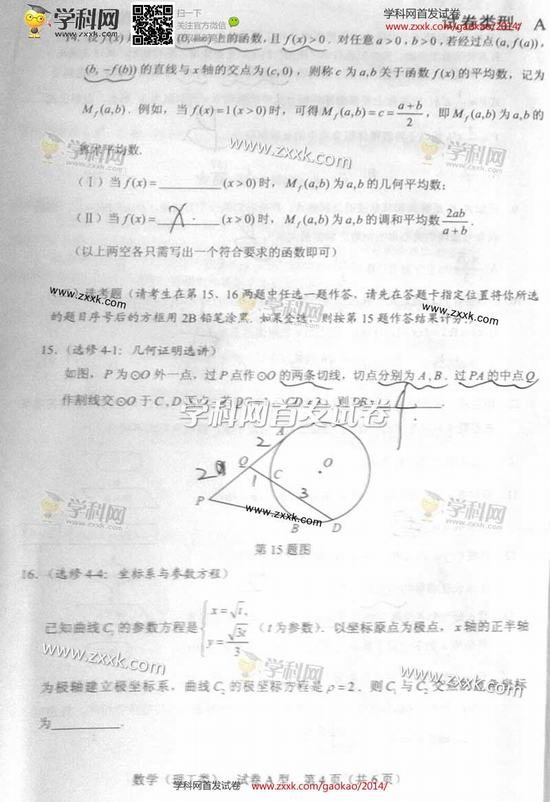 学科网首发试卷
www.zxxk.com/gaokao/2014/
学科网
www.zxxk.com
扫一扫
关注官方微信
试卷类型 A
14. 设 f(x) 是 (0, 上的函数, 且 f(x) > 0. 对任意 a > 0, b > 0, 若经过点 (a, f(a)),
(b, −f(b)) 的直线与 x 轴的交点为 (c, 0), 则称 c 为 a, b 关于函数 f(x) 的平均数, 记为
M_f(a,b). 例如, 当 f(x) = 1(x > 0) 时, 可得 M_f(a,b) = c = (a+b)/2, 即 M_f(a,b) 为 a, b 的
平均数.
www.zxxk.com
学科网
学科网
(Ⅰ) 当 f(x) = ______ (x > 0) 时, M_f(a,b) 为 a, b 的几何平均数;
(Ⅱ) 当 f(x) = __x__ (x > 0) 时, M_f(a,b) 为 a, b 的调和平均数 2ab/(a+b).
(以上两空各只需写出一个符合要求的函数即可)
选考题 (请考生在第 15、16 两题中任选一题作答, 请先在答题卡指定位置将你所选
www.zxxk.com
www.zxxk.com
的题目序号后的方框用 2B 铅笔涂黑. 如果全选, 则按第 15 题作答结果计分.)
15. (选修 4-1: 几何证明选讲)
如图, P 为 ⊙O 外一点, 过 P 点作 ⊙O 的两条切线, 切点分别为 A, B. 过 PA 的中点 Q
作割线交 ⊙O 于 C, D
4
学科网首发试卷
A
2
Q
C
O
2
1
3
P
B
D
学科网
www.zxxk.com
学科网
第 15 题图
16. (选修 4-4: 坐标系与参数方程)
已知曲线 C₁ 的参数方程是 { x = √t, y = √3t/3 (t 为参数). 以坐标原点为极点, x 轴的正半轴
www.zxxk.com
学科网
www.zxxk.com
为极轴建立极坐标系, 曲线 C₂ 的极坐标方程是 ρ = 2. 则 C₁ 与 C₂ 交点的直角坐标
为______.
学科网
学科网
数学 (理工类) 试卷 A 型 第 4 页 (共 6 页)
学科网首发试卷 www.zxxk.com/gaokao/2014/